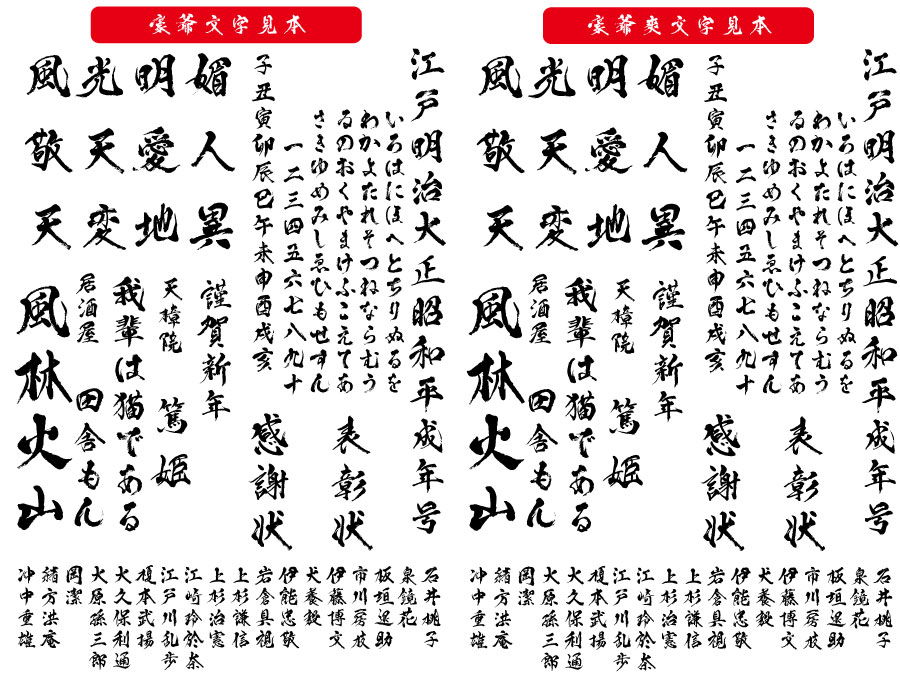 豪爺文字見本
江戸明治大正昭和平成年号
いろはにほへとちりぬるを
わかよたれそつねならむう
ゐのおくやまけふこえてあ
さきゆめみしゑひもせすん
一二三四五六七八九十
子丑寅卯辰巳午未申酉戌亥
表彰状
感謝状
媚人異
明愛地
光天変
風敬天
謹賀新年
天樟院 篤姫
我輩は猫である
居酒屋 田舎もん
風林火山
石井桃子
泉鏡花
板垣退助
市川房枝
伊藤博文
犬養毅
伊能忠敬
岩倉具視
上杉謙信
上杉治憲
江崎玲於奈
江戸川乱歩
榎本武揚
大久保利通
大原孫三郎
岡潔
緒方洪庵
沖中重雄
豪爺爽文字見本
江戸明治大正昭和平成年号
いろはにほへとちりぬるを
わかよたれそつねならむう
ゐのおくやまけふこえてあ
さきゆめみしゑひもせすん
一二三四五六七八九十
子丑寅卯辰巳午未申酉戌亥
表彰状
感謝状
媚人異
明愛地
光天変
風敬天
謹賀新年
天樟院 篤姫
我輩は猫である
居酒屋 田舎もん
風林火山
石井桃子
泉鏡花
板垣退助
市川房枝
伊藤博文
犬養毅
伊能忠敬
岩倉具視
上杉謙信
上杉治憲
江崎玲於奈
江戸川乱歩
榎本武揚
大久保利通
大原孫三郎
岡潔
緒方洪庵
沖中重雄